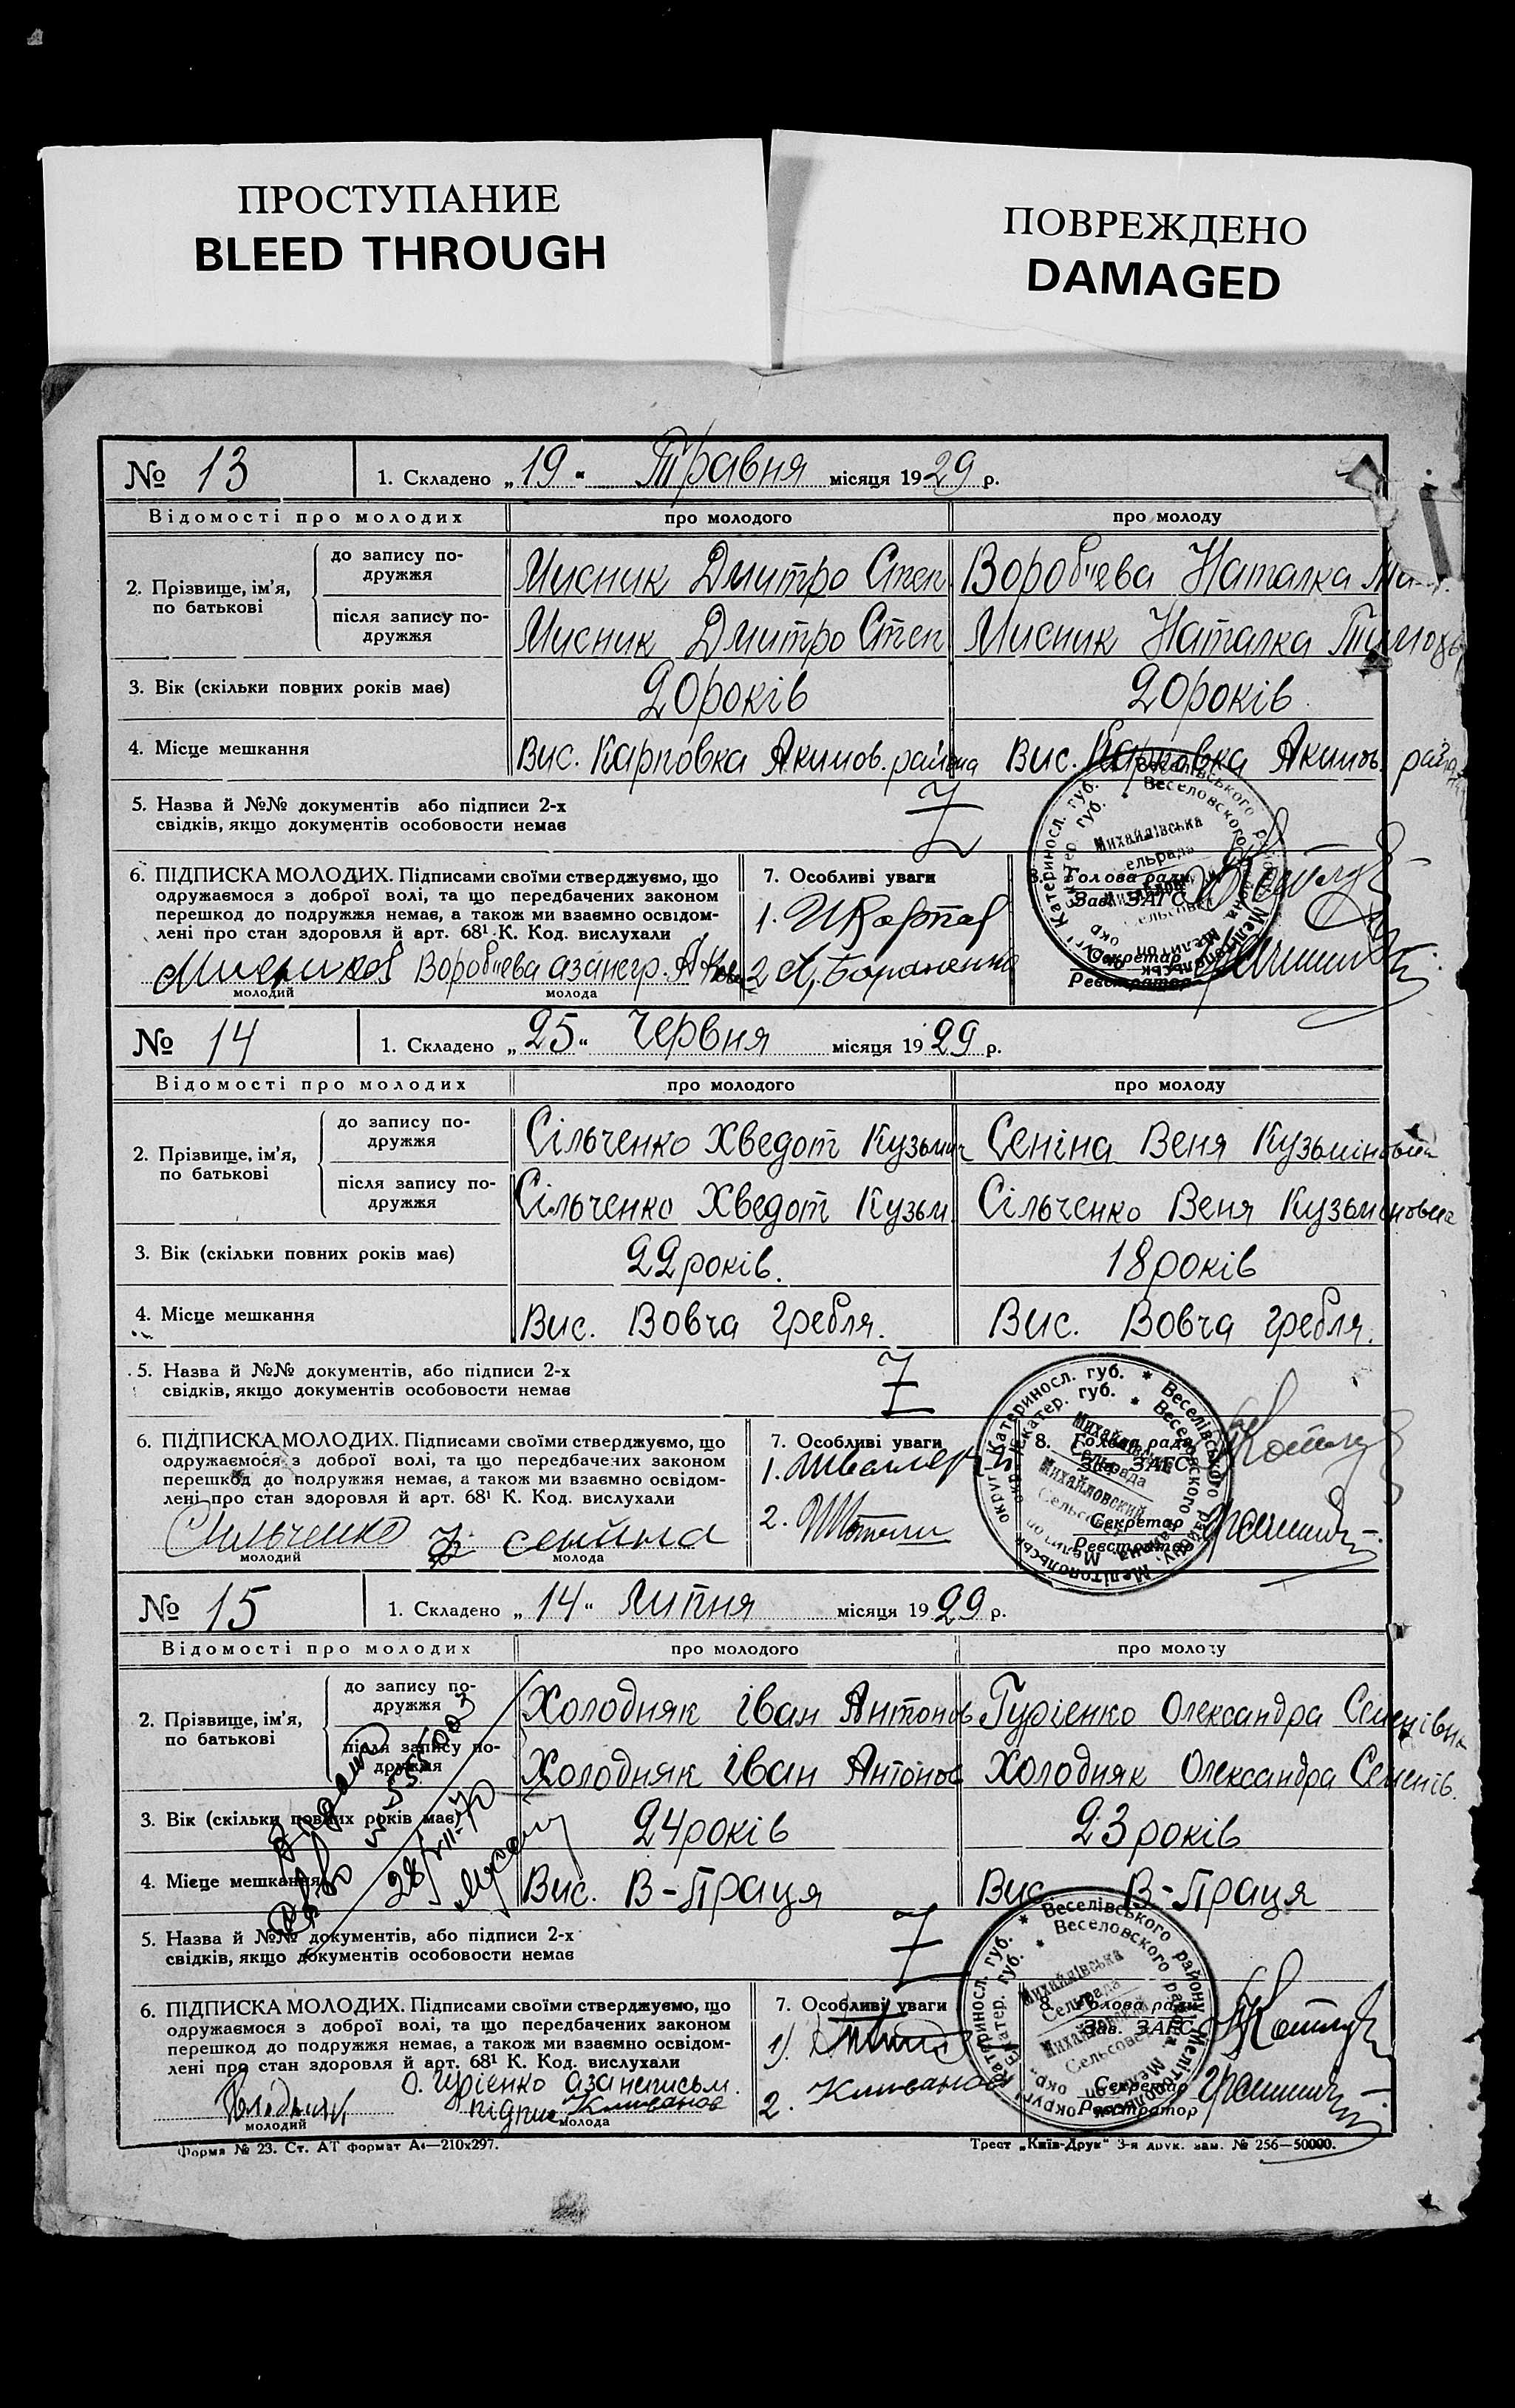 ПРОСТУПАНИЕ
BLEED THROUGH
ПОВРЕЖДЕНО
DAMAGED
№ 13 1. Складено „19“ Травня місяця 1929 р.
Відомості про молодих про молодого про молоду
2. Прізвище, ім'я, по батькові
до запису подружжя Мисник Дмитро Степ Воробйева Наталка
після запису подружжя Мисник Дмитро Степ Мисник Наталка
3. Вік (скільки повних років має) 20 років 20 років
4. Місце мешкання Вис. Карповка Акимов. района Вис. Карповка Акимов. района
5. Назва й №№ документів або підписи 2-х
свідків, якщо документів особовости немає
6. ПІДПИСКА МОЛОДИХ. Підписами своїми стверджуємо, що
одружаємося з доброї волі, та що передбачених законом
перешкод до подружжя немає, а також ми взаємно освідом-
лені про стан здоровля й арт. 68¹ К. Код. вислухали
Воробйева
молодий молода
7. Особливі уваги
1.
2
8. Голова ради
Зав. ЗАГС
Секретар
Реєстратор
№ 14 1. Складено „25“ Червня місяця 1929 р.
Відомості про молодих про молодого про молоду
2. Прізвище, ім'я, по батькові
до запису подружжя Сільченко Хведот Кузьмич Сеніна Веня Кузьміновна
після запису подружжя Сільченко Хведот Кузьм. Сільченко Веня Кузьміновна
3. Вік (скільки повних років має) 22 років. 18 років
4. Місце мешкання Вис. Вовча гребля. Вис. Вовча гребля.
5. Назва й №№ документів, або підписи 2-х
свідків, якщо документів особовости немає
6. ПІДПИСКА МОЛОДИХ. Підписами своїми стверджуємо, що
одружаємося з доброї волі, та що передбачених законом
перешкод до подружжя немає, а також ми взаємно освідом-
лені про стан здоровля й арт. 68¹ К. Код. вислухали
Сильченко сенина
молодий молода
7. Особливі уваги
1.
2.
8. Голова ради
Зав. ЗАГС
Секретар
Реєстратор
№ 15 1. Складено „14“ Липня місяця 1929 р.
Відомості про молодих про молодого про молоду
2. Прізвище, ім'я, по батькові
до запису подружжя Холодняк Іван Антонов Гурієнко Олександра Семенівна
після запису подружжя Холодняк Іван Антонов Холодняк Олександра Семенів.
3. Вік (скільки повних років має) 24 років 23 років
4. Місце мешкання Вис. В-Праця Вис. В-Праця
5. Назва й №№ документів, або підписи 2-х
свідків, якщо документів особовости немає
6. ПІДПИСКА МОЛОДИХ. Підписами своїми стверджуємо, що
одружаємося з доброї волі, та що передбачених законом
перешкод до подружжя немає, а також ми взаємно освідом-
лені про стан здоровля й арт. 68¹ К. Код. вислухали
О. Гурієнко
молодий молода
7. Особливі уваги
1).
2.
8. Голова ради
Зав. ЗАГС
Секретар
Реєстратор
Форма № 23. Ст. АТ формат А4—210х297.
Трест „Київ-Друк“ 3-я друк. зам. № 256—50000.